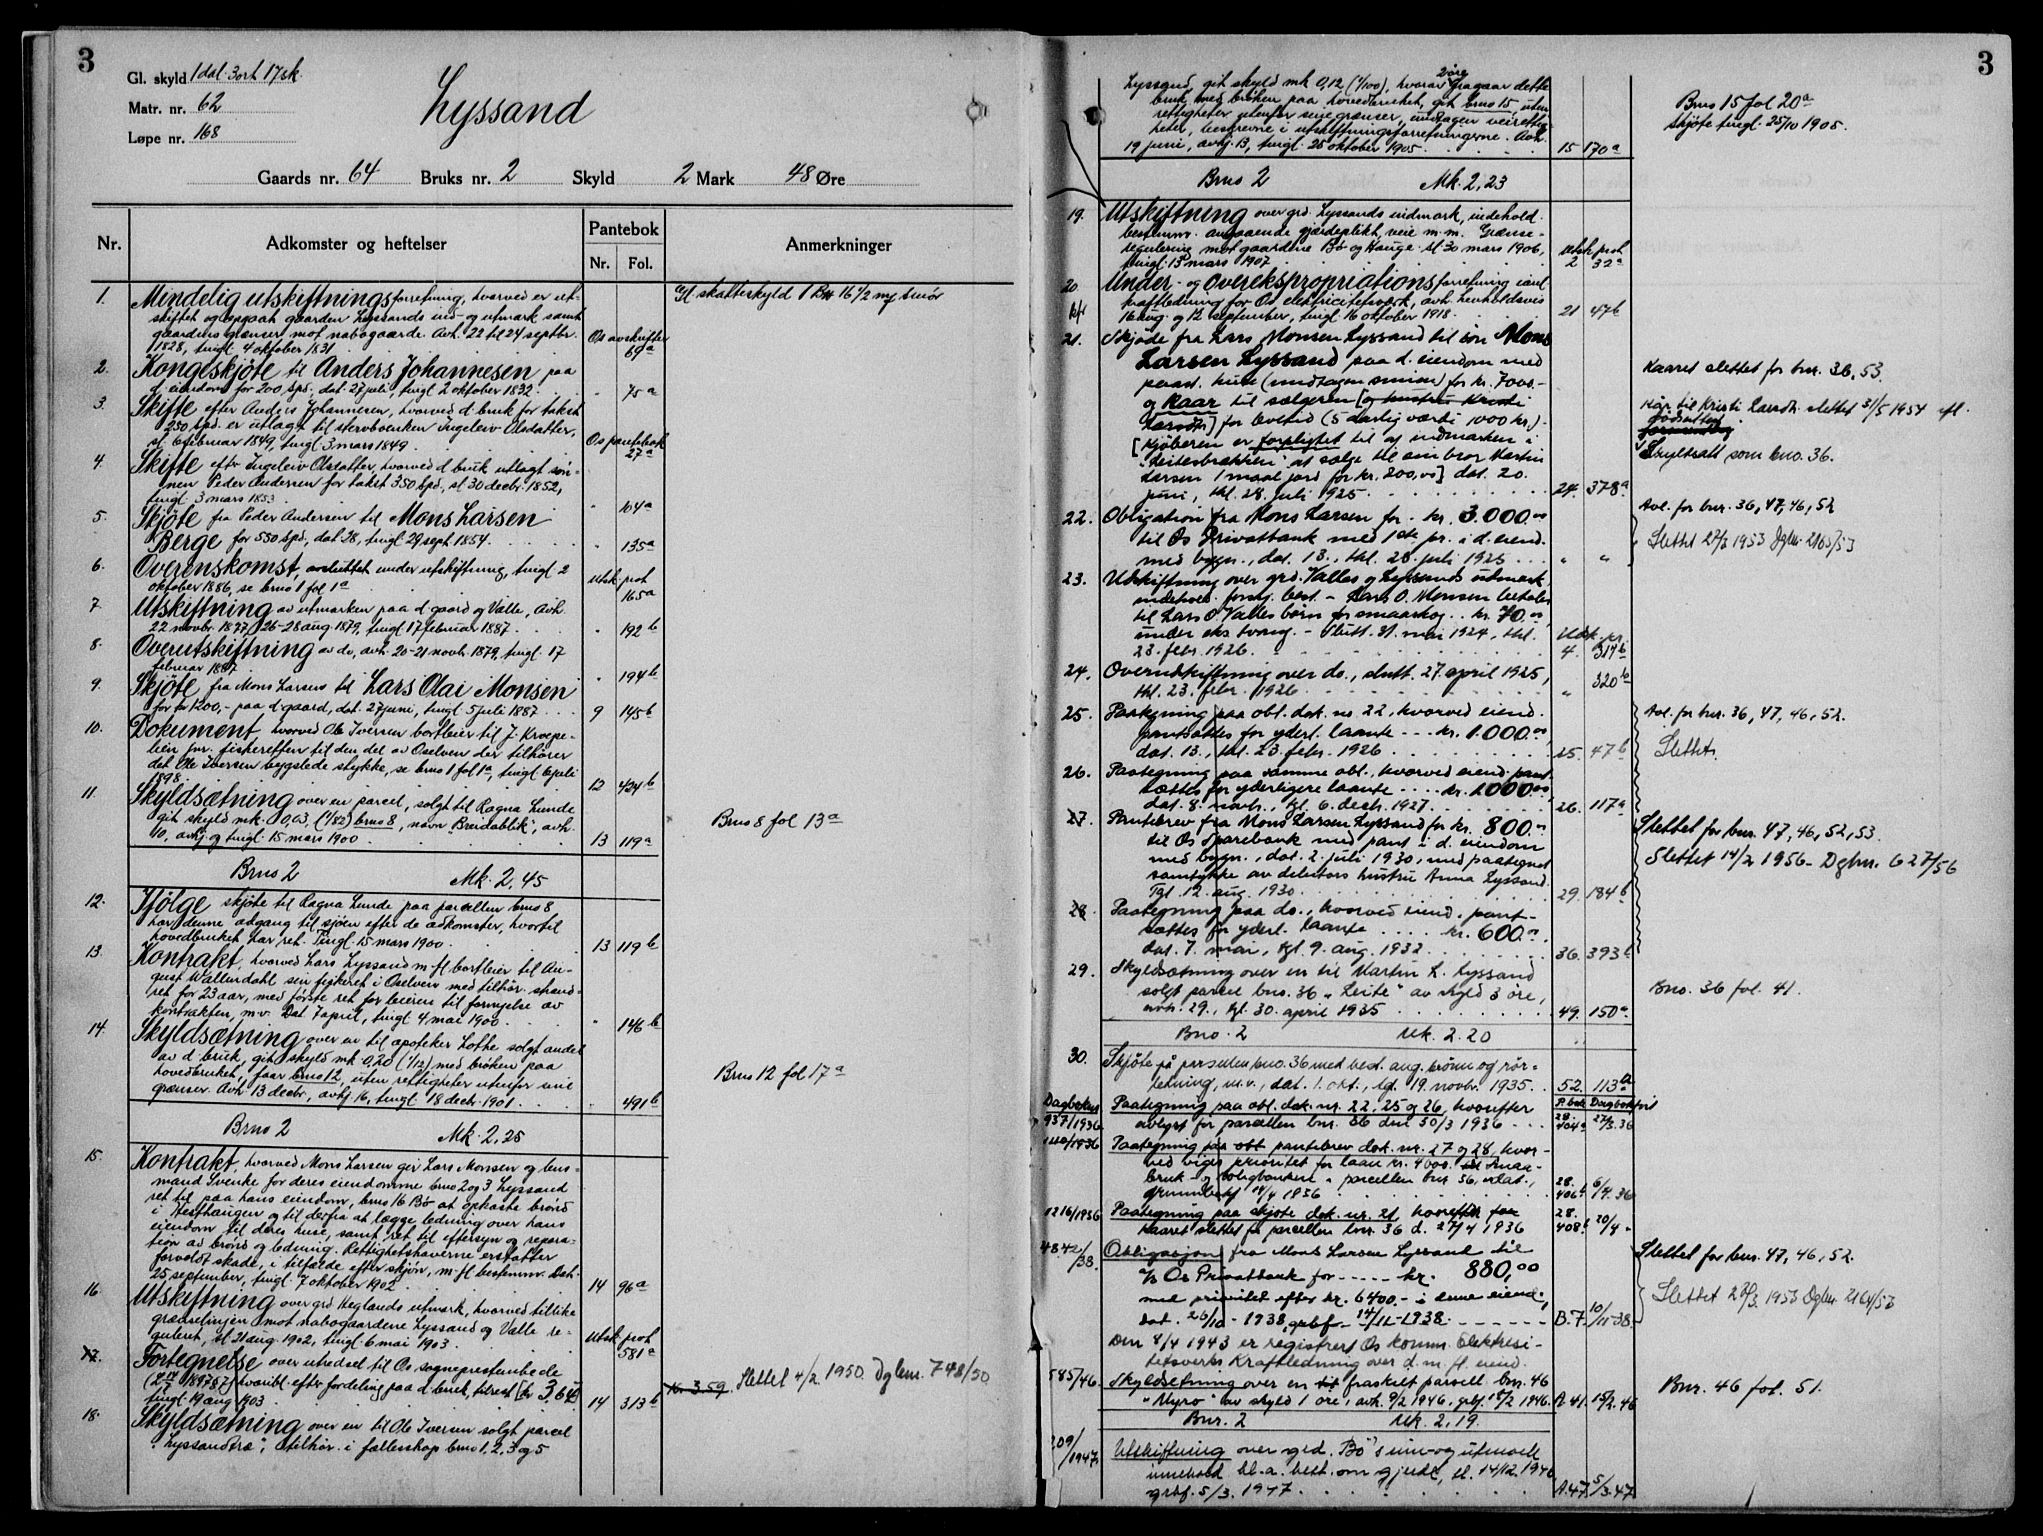 3
Gl. skyld 1 dal. 3 ort 17 sk.
Matr. nr. 62
Løpe nr. 168
Lyssand
Gaards nr. 64 Bruks nr. 2 Skyld 2 Mark 48 Øre
Nr. Adkomster og heftelser Pantebok Anmerkninger
Nr. Fol.
1. Mindelig utskiftningsforretning, hvorved er ut-
skiftet og opgaat gaarden Lyssands ind- og utmark samt
gaardens grænser mot nabogaarde. Avh. 22 til 24 septbr.
1828, tingl. 4 oktober 1831 Os avskrifter 69a
Gl. skatteskyld 1 16 1/2 smør
2. Kongeskjøte til Anders Johannesen paa
d. eiendom for 200 spd., dat. 27 juli, tingl. 2 oktober 1832 " 75a
3. Skifte efter Anders Johannesen, hvorved d. bruk for takst
250 spd. er utlagt til stervboenken Ingeleiv Olsdatter,
sl. 6 februar 1849, tingl. 3 mars 1849. Os pantebok 27a
4. Skifte efter Ingeleiv Olsdatter, hvorved d. bruk utlagt søn-
nen Peder Andersen for takst 350 spd., sl. 30 decbr. 1852,
tingl. 3 mars 1853 " 104a
5. Skjøte fra Peder Andersen til Mons Larsen
Berge for 550 spd., dat. 28, tingl. 29 sept. 1854. " 135a
6. Overenskomst, avsluttet under utskiftning, tingl. 2
oktober 1886, se brno 1 fol 1a utsk. prot. 165a
7. Utskiftning av utmarken paa d. gaard og Valle, avh.
22 novbr. 1877, 26-28 aug. 1879, tingl. 17 februar 1887. " 192b
8. Overutskiftning av do, avh. 20-21 novb. 1879, tingl. 17
februar 1887. " 194b
9. Skjøte fra Mons Larsen til Lars Olai Monsen
for kr 1200,- paa d. gaard, dat. 27 juni, tingl. 5 juli 1887. 9 145b
10. Dokument hvorved Ole Iversen bortleier til J. Kroepe-
lien jnr. fiskeretten til den del av Oselven der tilhører
det Ole Iversen bygslede stykke, se brno 1 fol 1a, tingl. 6 juli
1898. 12 424b
11. Skyldsætning over en parcel, solgt til Ragna Lunde
git skyld mk. 0,03, (1/82) brno 8, navn "Breidablik", avh.
10, avhj. og tingl. 15 mars 1900 13 119a
Brno 8 fol 13a
Brno 2 Mk. 2,45
12. Ifølge skjøte til Ragna Lunde paa parcellen brno 8
har denne adgang til sjøen efter de adkomster, hvortil
hovedbruket har ret. Tingl. 15 mars 1900. 13 119b
13. Kontrakt, hvorved Lars Lyssand m. fl. bortleier til Au-
gust Wallendahl sin fiskeret i Oselven med tilhør. strand-
ret for 23 aar, med første ret for leieren til fornyelse av
kontrakten, m. v. Dat. 7 april, tingl. 4 mai 1900. " 146b
14. Skyldsætning over en til apoteker Lothe solgt andel
av d. bruk, git skyld mk. 0,20 (1/12) med brøken paa
hovedbruket, faar brno 12, uten rettigheter utenfor sine
grænser. Avh. 13 decbr., avhj. 16, tingl. 18 decb. 1901. " 491b
Brno 12 fol 17a
Brno 2 Mk. 2,25
15. Kontrakt, hvorved Mons Larsen gir Lars Monsen og hus-
mand Svenke for deres eiendomme brno 2 og 3 Lyssand
ret til paa hans eiendom, brno 16 Bø at opkaste brønd
i Hesthaugen og til derfra at lægge ledning over hans
eiendom til deres huse, samt ret til eftersyn og repara-
tion av brønd og ledning. Rettighetshaverne erstatter
forvoldt skade, i tilfælde efter skjøn, m. fl. bestemm. Dat.
25 september, tingl. 7 oktober 1902 14 96a
16. Utskiftning over grd Heglands utmark, hvorved tillike
grændselinjen mot nabogaardene Lyssand og Valle re-
guleret, sl. 21 aug. 1902, tingl. 6 mai 1903. utsk. prot 581a
17. Fortegnelse over utredsel til Os sogneprestembede
hvoribl. efter fordeling paa d. bruk, tilrest [kr 3,64]
tingl. 19 aug 1903 14 313b
Kr. 3.59. Slettet 4/2 1950. Dgbnr. 748/50
18. Skyldsætning over en til Ole Iversen solgt parcel
"Lyssandtræ", tilhør. i fællesskap brno 1, 2, 3 og 5
3
Lyssand, git skyld mk 0,12 (1/100), hvorav 2 øre fragaar dette
bruk, med brøken paa hovedbruket, git brno 15, uten
rettigheter utenfor sine grænser, undtagen veirettig-
heter, beskrevne i utskiftningsforretningerne. Avh.
19 juni, avhj. 13, tingl. 25 oktober 1905 15 170a
Brno 15 fol 20a
Skjøte tingl. 25/10 1905.
Brno 2 Mk. 2,23
19. Utskiftning over grd. Lyssands indmark, indehold.
bestemm. angaaende gjærdeplikt, veie m.m. Grænse-
regulering mot gaardene Bø og Hauge. sl. 30 mars 1906,
tingl. 13 mars 1907 utsk. prot 2 32a
20 Under- og overekspropriationsforretning
kraftledning for Os elektricitetsværk, avh. henholdsvis
16 aug. og 12 september, tingl. 16 oktober 1918. 21 47b
21. Skjøde fra Lars Monsen Lyssand til søn Mons
Larsen Lyssand paa d. eiendom med
paast. huse (undtagen smien) for kr. 7000.-
og kaar til sælgeren [og hustru Kristi
Larsdtr] for levetid (5 aarlig værdi 1000 kr).
[Kjøberen er forpligtet til og indmarken i
"Leitebrækken" at sælge til sin bror Martin
Larsen 1 maal jord for kr. 200,00] dat. 20.
juni, tgl. 28. juli 1925. 24. 378a
Kaaret slettet for bnr. 36, 53.
Kår til Kristi Larsdtr. slettet 31/5 1954
Skyldsatt som bno. 36.
22. Obligation fra Mons Larsen for kr. 3.000.00
til Os Privatbank med 1ste pr. i d. eiend.
med bygn., dat. 13., tgl. 28. juli 1925 " "
Avl. for bnr. 36, 47, 46, 52
Slettet 27/3 1953 Dgbnr. 2165/53
23. Utskiftning over grd. Valles og Lyssands utmark
indehold. forsk. best. - Lars O. Monsen betaler
til Lars O. Valles børn for smaaskog .. kr. 70.00,
under eks. tvang. - Slutt. 31. mai 1924, tgl.
23. febr. 1926. Utsk. pr. 4. 317b
24. Overutskiftning over do., slutt. 27. april 1925,
tgl. 23. febr. 1926 " 320b
25. Paategning paa obl. dok. nr. 22, hvorved eiend.
pantsættes for yderl. laante --- kr. 1.000.00,
dat. 13., tgl. 23. febr. 1926 25. 47b
Avl. for bnr. 36, 47, 46, 52.
Slettet.
26. Paategning paa samme obl., hvorved eiend. pant-
sættes for yderligere laante ---- kr. 1000.00
dat. 8. novb., tgl. 6. decb. 1927 26. 117a
27. Pantebrev fra Mons Larsen Lyssand for kr. 800.00
til Os Sparebank med pant i d. eiendom
med bygn., dat. 2. juli 1930, med paategnet
samtykke av debitors hustru Anna Lyssand.
Tgl. 12. aug. 1930 29. 184b
Slettet for bnr. 47, 46, 52, 53.
Slettet 14/2 1956 - Dgbnr. 627/56
28. Paategning paa do., hvorved eiend. pant-
sættes for yderl. laante .... kr. 600.00,
dat. 7. mai, tgl. 9. aug. 1932 36. 393b
29. Skyldsætning over en til Martin L. Lyssand
solgt parcel bno. 36 "Leite" av skyld 3 øre,
avh. 29., tgl. 30. april 1935 49. 150a
Bno. 36 fol. 41.
Bno. 2 Mk. 2.20
30. Skjøte på parsellen bno. 36 med best. ang. brønn og rør-
ledning, m.v., dat. 1. okt., tgl. 19. novbr. 1935. 52. 113b
Dagboknr P. bok Dagbokført
937/1936 Paategning paa obl. dok. nr. 22, 25 og 26, hvorefter
avlyst for parsellen bnr. 36 den 30/3 1936 28. 404a 27/3.36
1140/1936 Paategning paa obl pantebrev dok. nr. 27 og 28, hvor-
ved viger prioritet for laan kr. 4000. til Smaa-
bruk- og boligbanken i parcellen bnr 36, udat.,
14/4 1936 28. 406b 6/4. 36
1216/1936 Paategning paa skjøte dok. nr. 21 hvorefter for
kaaret slettet for parcellen bnr. 36 d. 27/4 1936 28. 408b 20/4 "
4842/38. Obligasjon fra Mons Larsen Lyssand til
A/S Os Privatbank for ----- kr. 880,00
med prioritet efter kr. 6400.- i denne eiend.,
dat. 26/10 - 1938, grbf. 14/11-1938 B.7. 10/11-38
Slettet for bnr. 47, 46, 52.
Slettet 27/3. 1953 Dgbnr 2164/53
Den 8/4 1943 er registrert Os komm. Elektrisi-
tetsverks kraftledning over d. m. fl. eiend.
585/46. Skyldsetning over en fraskelt parsell bnr. 46
"Myro" av skyld 1 øre, avh. 9/2 1946, grbf. 15/2 1946. A.41. 15/2.46
Bnr. 46 fol. 51.
Bnr. 2 Mk. 2,19.
209/1947. Utskiftning over grd. Bø's inn- og utmark
innehold. bl. a. best. om gjerde, sl. 14/12 1946
grbf. 5/3. 1947 A.47. 5/3.47